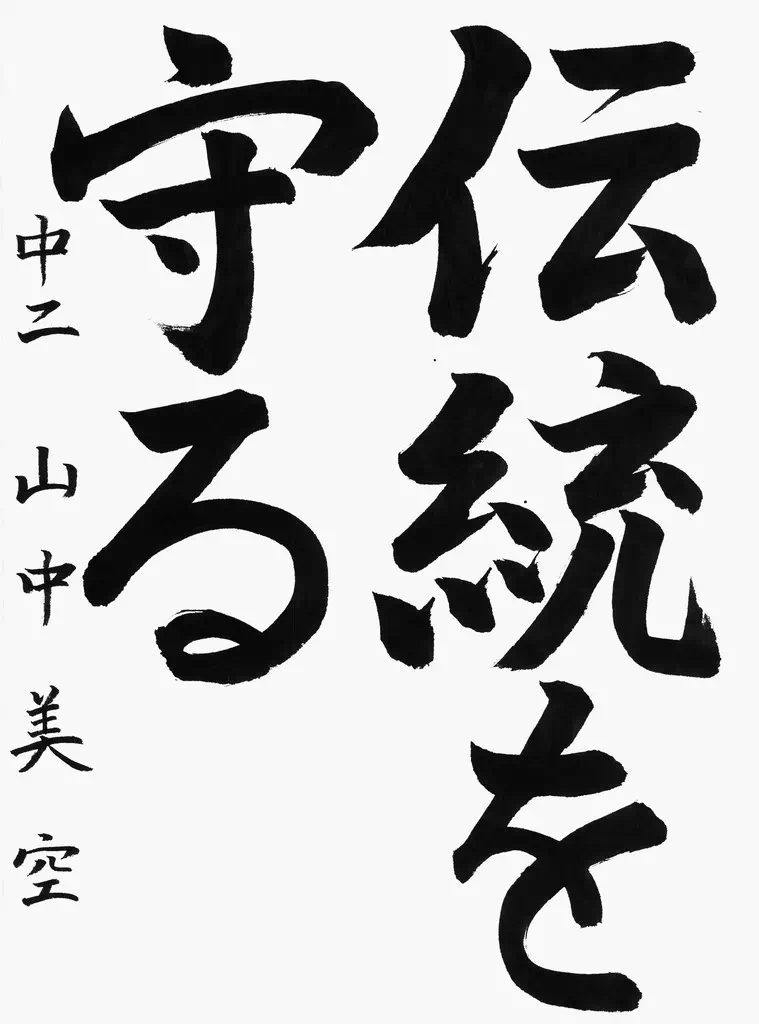 伝統を
守る
中二 山中美空